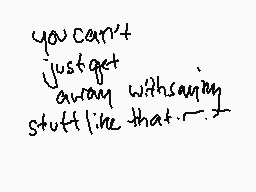 you can't
just get
away with saying
stuff like that.-.+